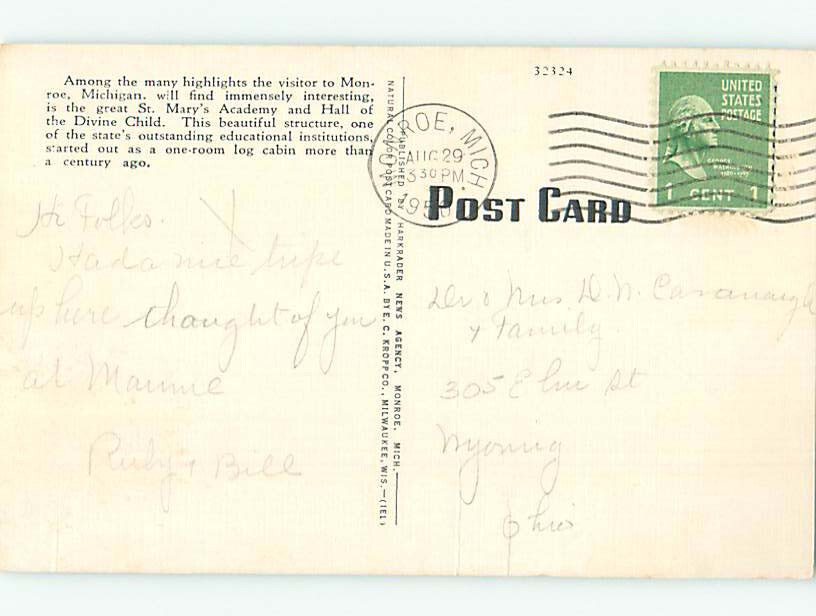 Among the many highlights the visitor to Mon-
roe, Michigan, will find immensely interesting,
is the great St. Mary's Academy and Hall of
the Divine Child. This beautiful structure, one
of the state's outstanding educational institutions,
started out as a one-room log cabin more than
a century ago.
Hi Folks.
Had a nice tripe
up here thought of you
at Maumie
Ruby & Bill
NATURAL COLOR POST CARD MADE IN U.S.A. BY E. C. KROPP CO., MILWAUKEE, WIS.—(IE1)
PUBLISHED BY HARKRADER NEWS AGENCY, MONROE, MICH.
32324
MONROE, MICH
AUG 29
3 30 PM
1950
POST CARD
UNITED
STATES
POSTAGE
GEORGE
WASHINGTON
1 CENT 1
Dr & Mrs D. W. Cavanaugh
& Family
305 Elm St
Wyoming
Ohio